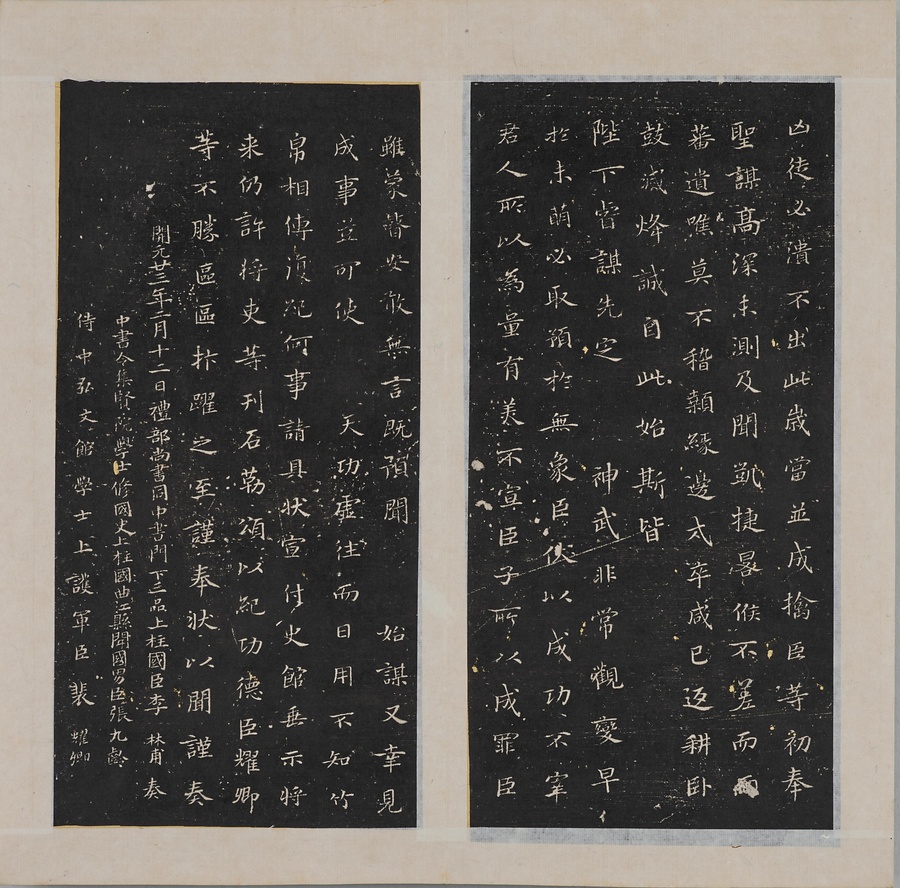 凶徒必潰不出此歲當並成擒臣等初奉
聖謀高深未測及聞凱捷晷候不差而
蕃遺唯莫不稽顙緣邊戍卒咸已返耕臥
鼓滅烽誠自此始斯皆
陛下睿謀先定　神武非常觀變早
於未萌必取預於無象臣伏以成功不宰
君人所以為量有美不宣臣子所以成罪臣
雖蒙瞽安敢無言既預聞　始謀又幸見
成事豈可使　天功虛往而日用不知竹
帛相傳復紀何事請具狀宣付史館垂示將
来仍許將吏等刊石勒頌以紀功德臣耀卿
等不勝區區抃躍之至謹奉狀以聞謹奏
開元廿三年二月十二日禮部尚書同中書門下三品上柱國臣李林甫奏
中書令集賢院學士修國史上柱國曲江縣開國男臣張九齡
侍中弘文館學士上護軍臣裴耀卿